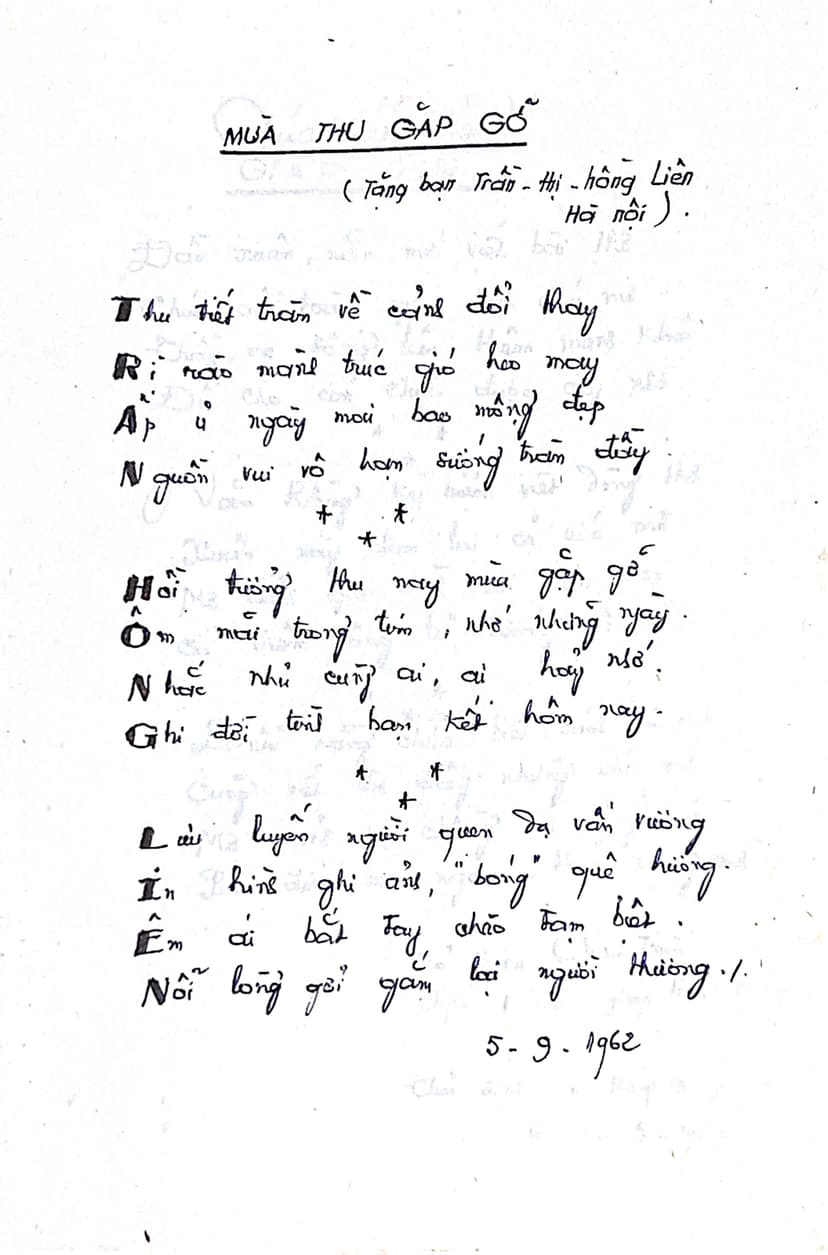 MÙA THU GẶP GỠ
(Tặng bạn Trần-thị-hồng Liên
Hà nội).
Thu tiết tràn về cảnh đổi thay
Rì rào mành trúc gió heo may
Ấp ủ ngày mai bao mộng đẹp
Nguồn vui vô hạn sướng tràn đầy.
* *
*
Hồi tưởng thu nay mùa gặp gỡ
Ôm mãi trong tim, nhớ những ngày.
Nhắc nhủ cùng ai, ai hãy nhớ.
Ghi đời tình bạn kết hôm nay.
* *
*
Lưu luyến người quen dạ vấn vương
In hình ghi ảnh, "bóng" quê hương.
Êm ái bắt tay chào tạm biệt.
Nỗi lòng gởi gắm lại người thương./.
5-9-1962